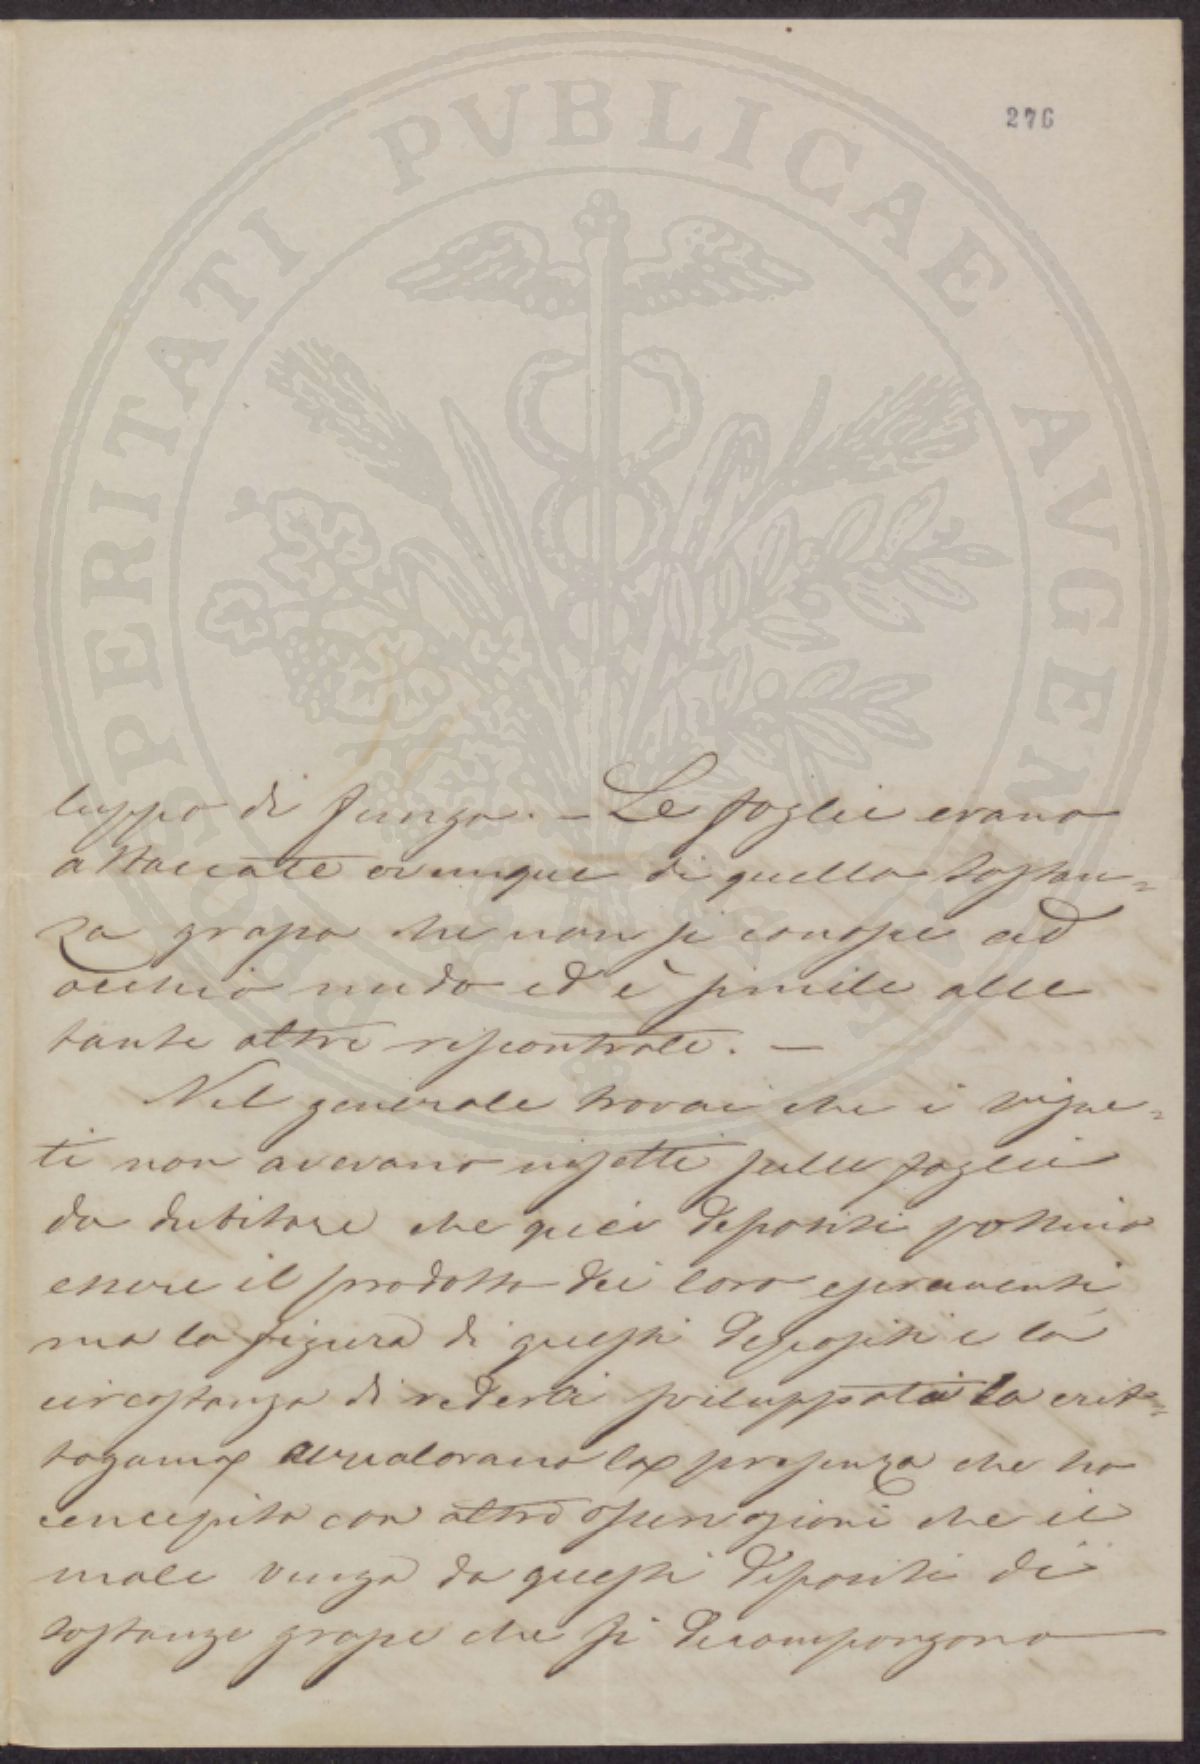 276
PROSPERITATI PVBLICAE AVGENDAE
luppo di fungo. – Le foglie erano
attaccate ovunque di quella sostan=
za grassa che non si conosce ad
occhio nudo ed è simile alle
tante altre riscontrate. –
Nel generale trovai che i vigne=
ti non avevano insetti sulle foglie
da dubitare che quei depositi possino
essere il prodotto dei loro escrementi
ma la figura di questi depositi e la
circostanza di vedervi sviluppata la crit=
togama avvalorano la presenza che ho
concepita con altre osservazioni che il
male venga da questi depositi di
sostanze grasse che si decompongono